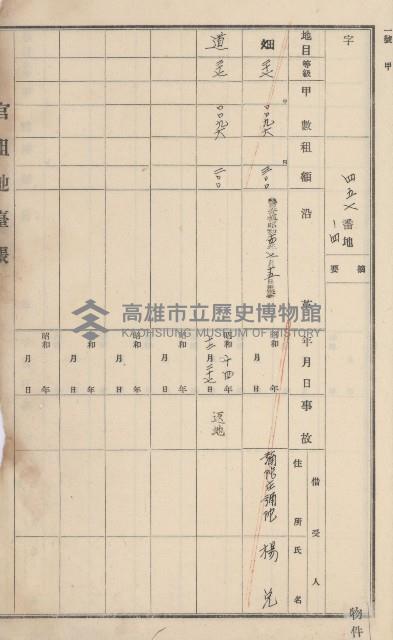 一號甲
字
四五七番地
ノ四
摘要
地目
等級
甲數
租額
沿革
年月日
事故
借受人
住所
氏名
畑
〇〇九六
二〇〇
昭和 年 月 日
楊 兄
道
〇〇九六
二〇〇
昭和十四年十二月二十七日
返地
昭和 年 月 日
昭和 年 月 日
昭和 年 月 日
昭和 年 月 日
官租地臺帳
高雄市立歷史博物館
KAOHSIUNG MUSEUM OF HISTORY
物件